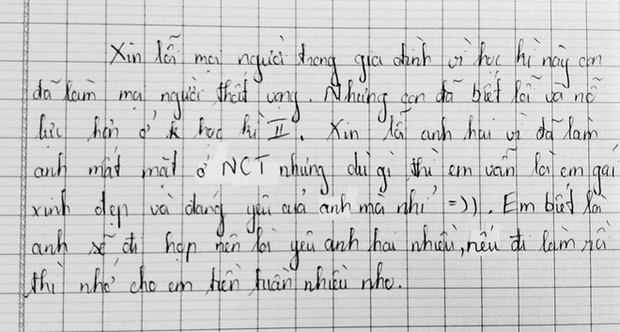 Xin lỗi mọi người trong gia đình vì học kì này con
đã làm mọi người thất vọng. Nhưng con đã biết lỗi và nỗ
lực hơn ở học kì II. Xin lỗi anh hai vì đã làm
anh mất mặt ở NCT nhưng dù gì thì em vẫn là em gái
xinh đẹp và đáng yêu của anh mà nhỉ =)). Em biết là
anh sẽ đi họp nên yêu anh hai nhiều, nếu đi làm rồi
thì nhớ cho em tiền tuần nhiều nha.